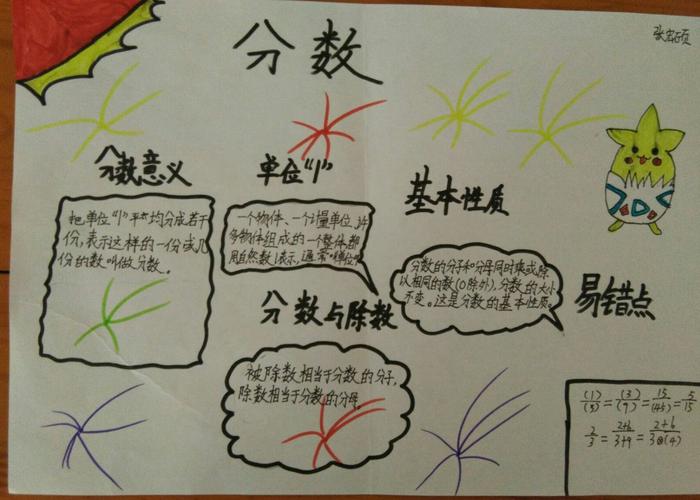 分数
张宏硕
分数意义
把单位“1”平均分成若干
份,表示这样的一份或几
份的数叫做分数。
单位“1”
一个物体、一个计量单位,许
多物体组成的一个整体,都
用自然数1表示,通常
基本性质
分数的分子和分母同时乘或除
以相同的数(0除外),分数的大小
不变。这是分数的基本性质。
分数与除数
被除数相当于分数的分子,
除数相当于分数的分母。
易错点
(1)/(3) = (3)/(9) = 15/(45) = 5/15
2/3 = 2+6/3+9 = 2+6/3⊕(4)